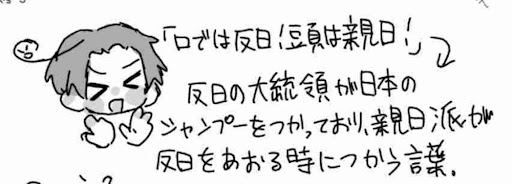 「口では反日!豆頁は親日!」
反日の大統領が日本の
シャンプーをつかっており、親日派が
反日をあおる時につかう言葉.